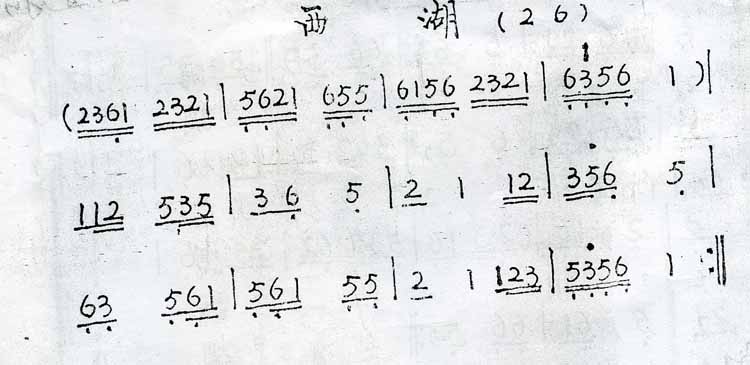 西 湖 (2 6)
(2361 2321 | 5621 655 | 6156 2321 | 6356 1 )|
112 535 | 36 5 | 2 1 12 | 356 5 |
63 561 | 561 55 | 2 1 123 | 5356 1 :||